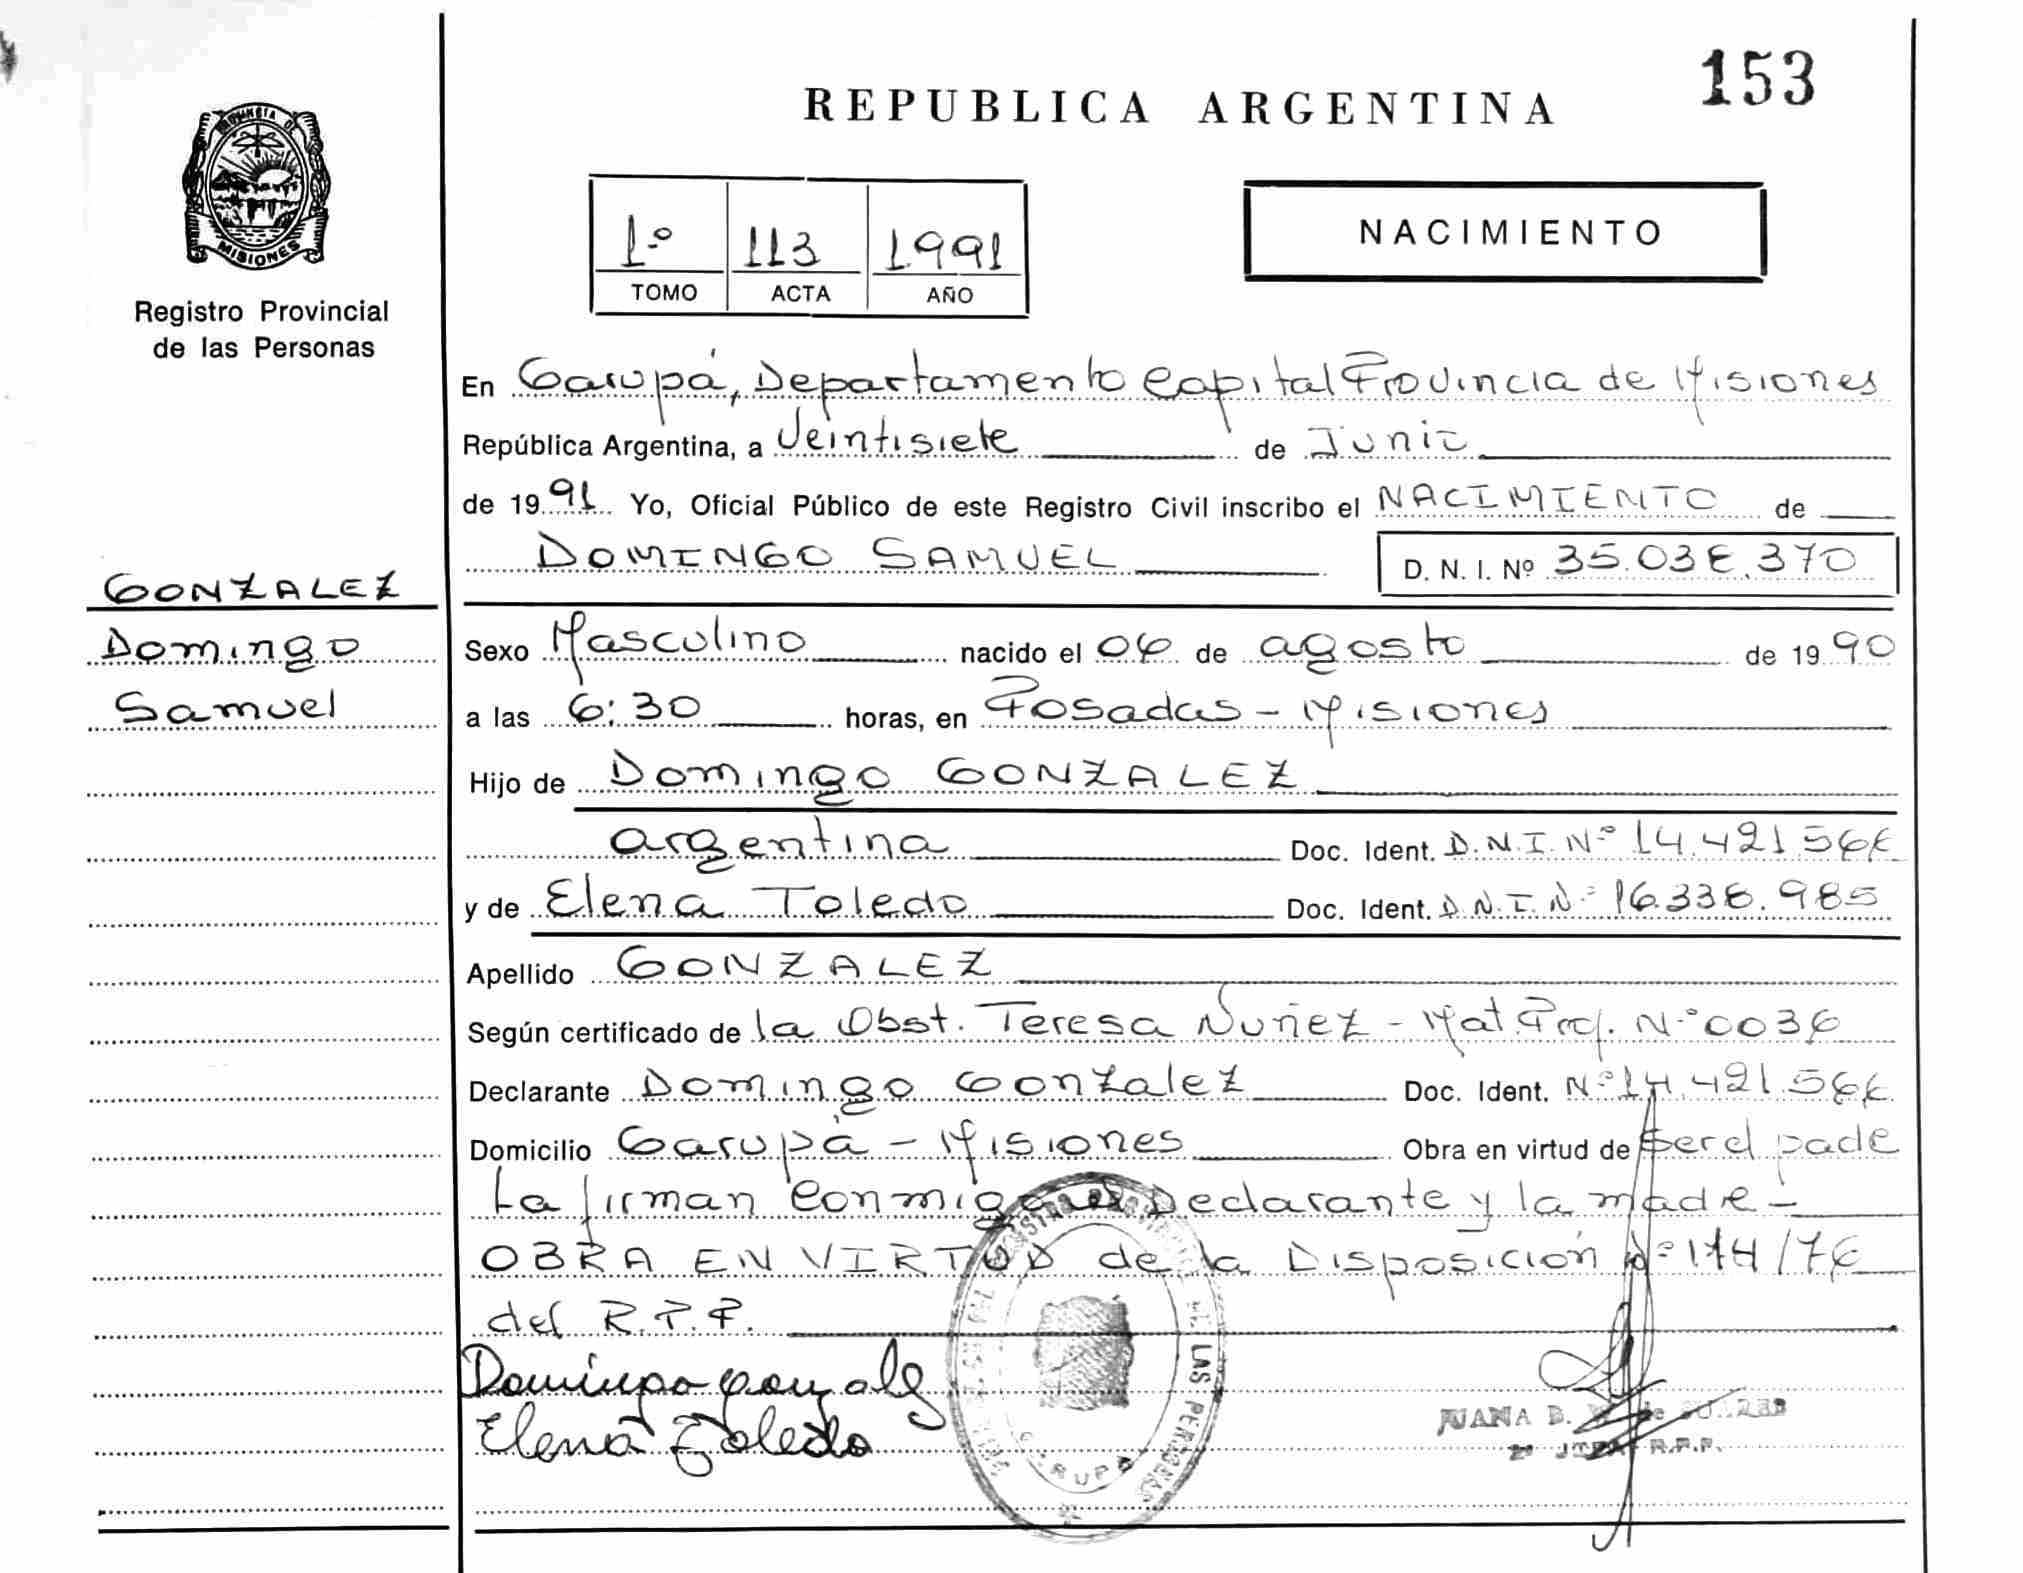 153
REPUBLICA ARGENTINA
PROVINCIA DE
MISIONES
Registro Provincial
de las Personas
1º 113 1991
TOMO ACTA AÑO
NACIMIENTO
En Garupá, Departamento Capital Provincia de Misiones
República Argentina, a Veintisiete de Junio
de 1991 Yo, Oficial Público de este Registro Civil inscribo el NACIMIENTO de
DOMINGO SAMUEL D. N. I. Nº 35.038.370
GONZALEZ
Domingo
Samuel
Sexo Masculino nacido el 06 de agosto de 1990
a las 6:30 horas, en Posadas - Misiones
Hijo de Domingo GONZALEZ
argentina Doc. Ident. D.N.I. Nº 14.421.568
y de Elena Toledo Doc. Ident. D.N.I. Nº 16.338.985
Apellido GONZALEZ
Según certificado de la Obst. Teresa Nuñez - Mat. Prof. Nº 0036
Declarante Domingo Gonzalez Doc. Ident. Nº 14.421.568
Domicilio Garupá - Misiones Obra en virtud de ser el padre
La firman conmigo el Declarante y la madre -
OBRA EN VIRTUD de la Disposición Nº 174/78
del R.P.P.
Domingo gonzalez
Elena Toledo
DE LAS PERSONAS
GARUPA
JUANA B. de SUAREZ
R.P.P.